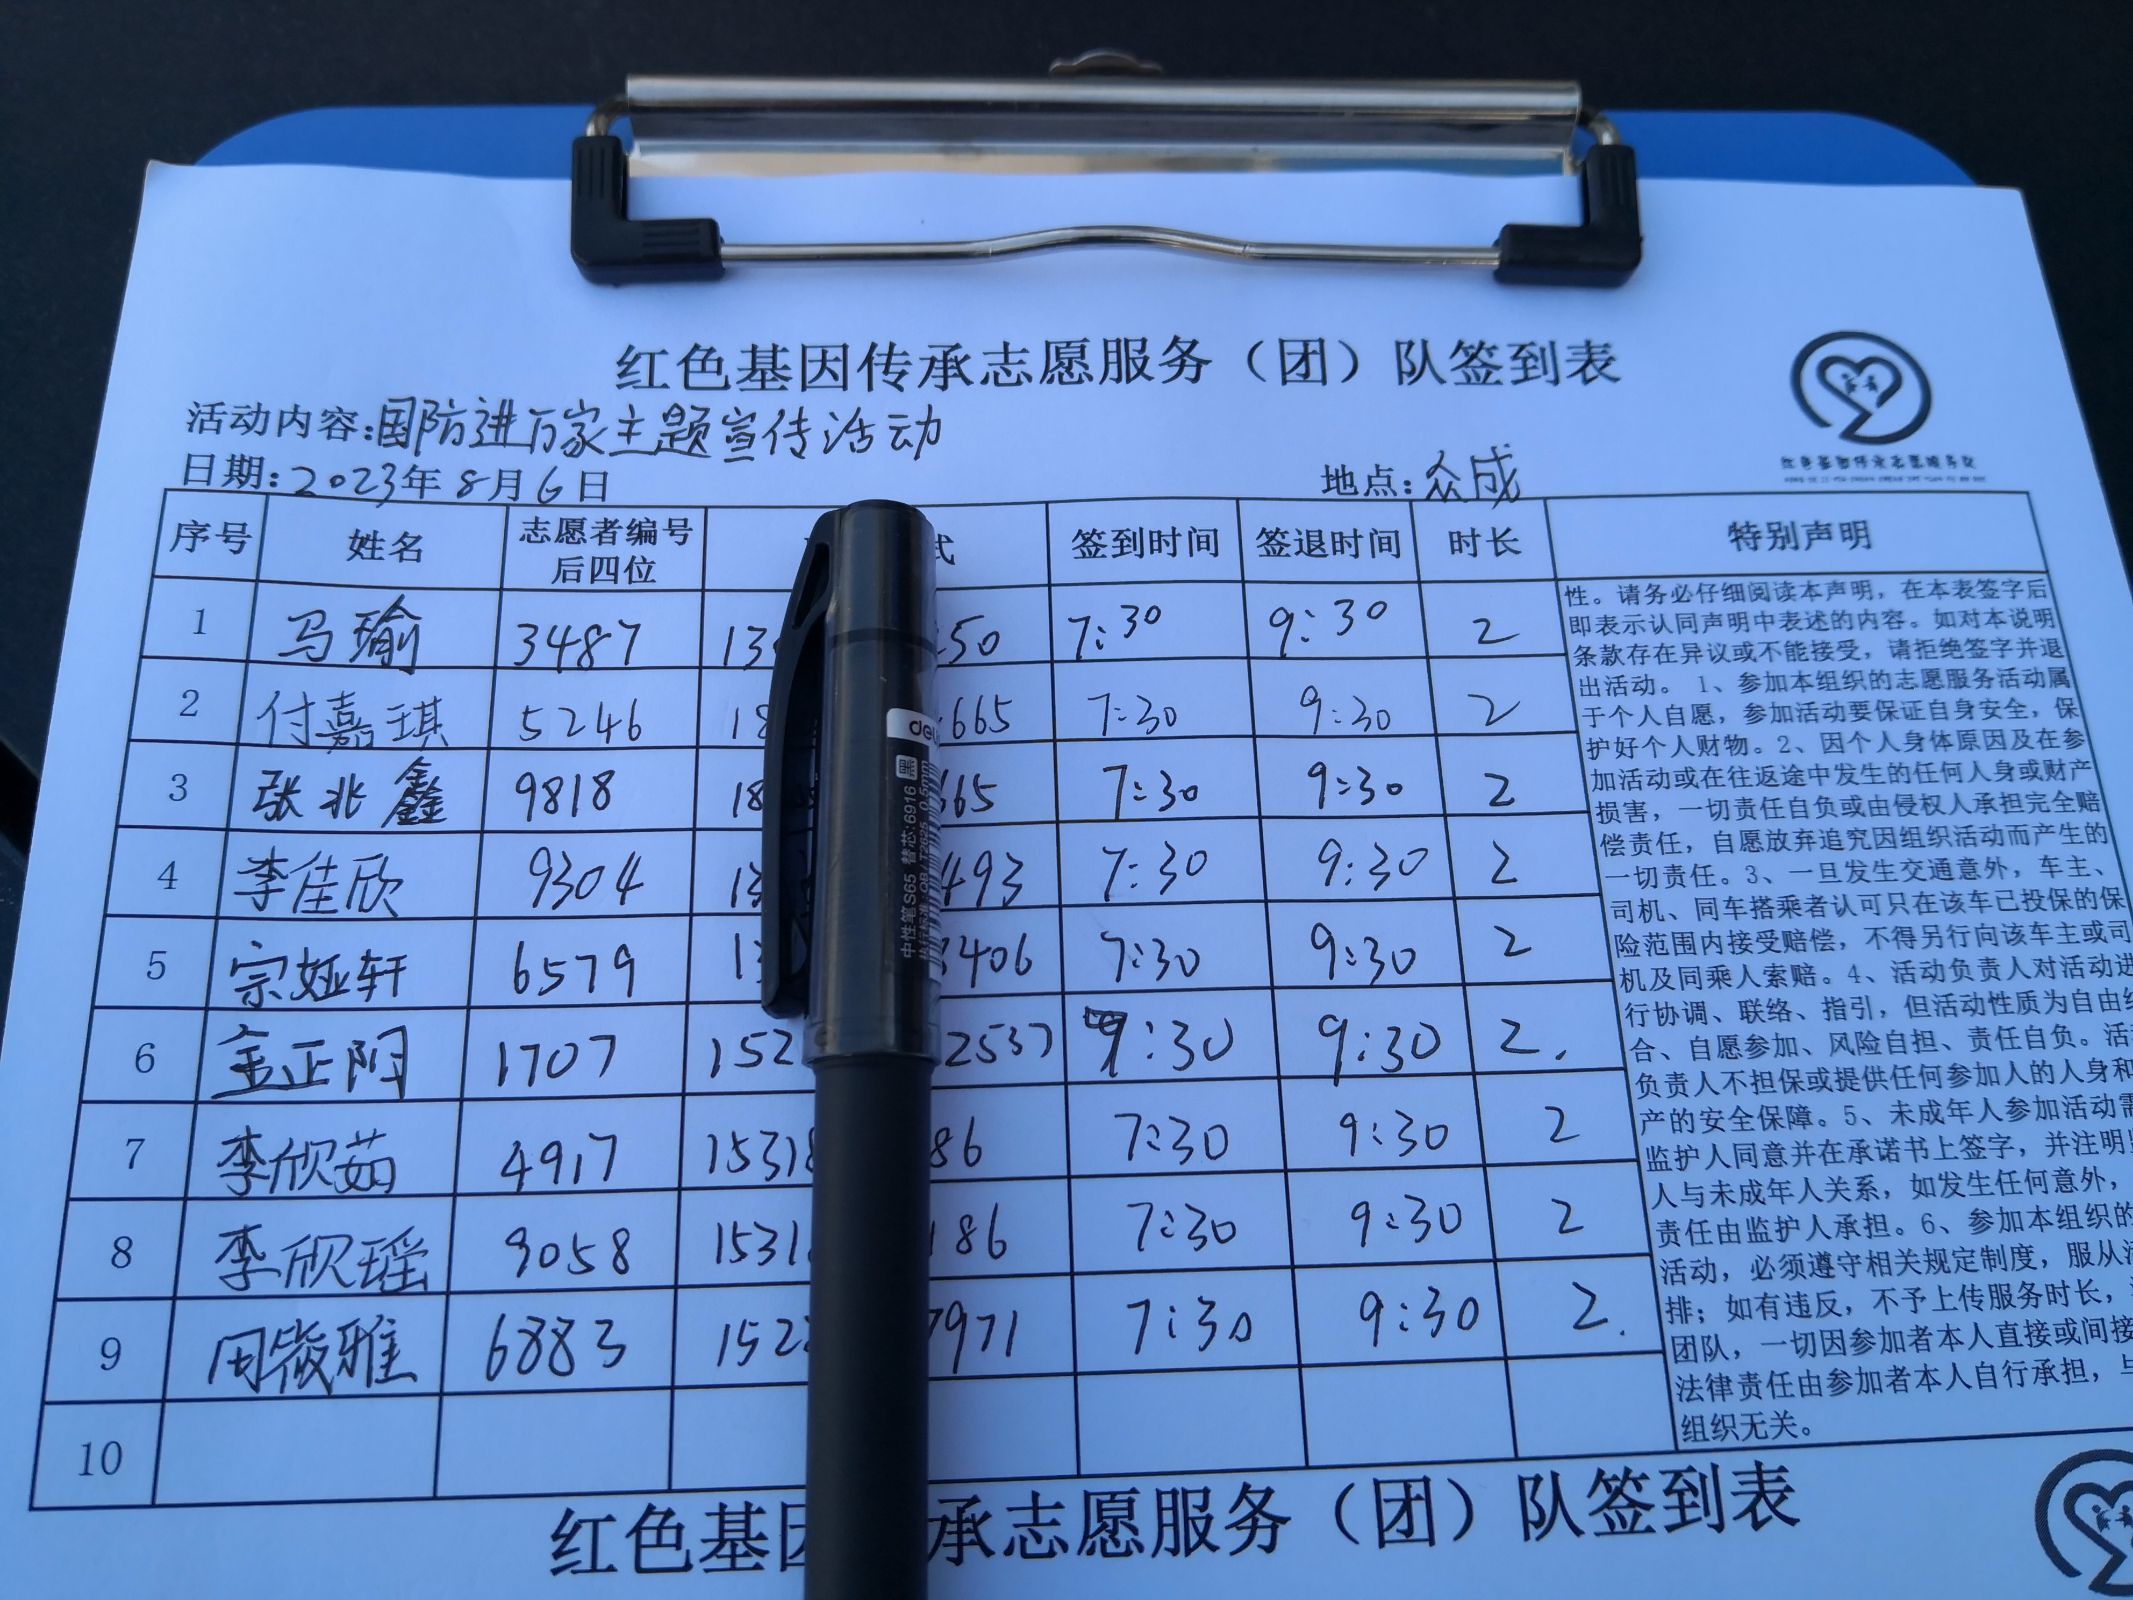 红色基因传承志愿服务（团）队签到表
活动内容:国防进万家主题宣传活动
日期:2023年8月6日 地点:众成
序号 姓名 志愿者编号后四位 式 签到时间 签退时间 时长 特别声明
1 马瑜 3487 13 50 7:30 9:30 2
2 付嘉琪 5246 18 665 7:30 9:30 2
3 张兆鑫 9818 18 665 7:30 9:30 2
4 李佳欣 9304 13 493 7:30 9:30 2
5 宗娅轩 6579 13 406 7:30 9:30 2
6 金正阳 1707 152 2537 7:30 9:30 2.
7 李欣茹 4917 15318 86 7:30 9:30 2
8 李欣瑶 9058 1531 186 7:30 9:30 2
9 周筱雅 6883 152 7971 7:30 9:30 2.
10
性。请务必仔细阅读本声明，在本表签字后
即表示认同声明中表述的内容。如对本说明
条款存在异议或不能接受，请拒绝签字并退
出活动。1、参加本组织的志愿服务活动属
于个人自愿，参加活动要保证自身安全，保
护好个人财物。2、因个人身体原因及在参
加活动或在往返途中发生的任何人身或财产
损害，一切责任自负或由侵权人承担完全赔
偿责任，自愿放弃追究因组织活动而产生的
一切责任。3、一旦发生交通意外，车主、
司机、同车搭乘者认可只在该车已投保的保
险范围内接受赔偿，不得另行向该车主或司
机及同乘人索赔。4、活动负责人对活动进
行协调、联络、指引，但活动性质为自由组
合、自愿参加、风险自担、责任自负。活
负责人不担保或提供任何参加人的人身和
产的安全保障。5、未成年人参加活动需
监护人同意并在承诺书上签字，并注明
人与未成年人关系，如发生任何意外，
责任由监护人承担。6、参加本组织的
活动，必须遵守相关规定制度，服从
排；如有违反，不予上传服务时长，
团队，一切因参加者本人直接或间接
法律责任由参加者本人自行承担，与
组织无关。
deli
黑
中性笔S65 替芯:6916 0.5mm
红色基因承志愿服务（团）队签到表